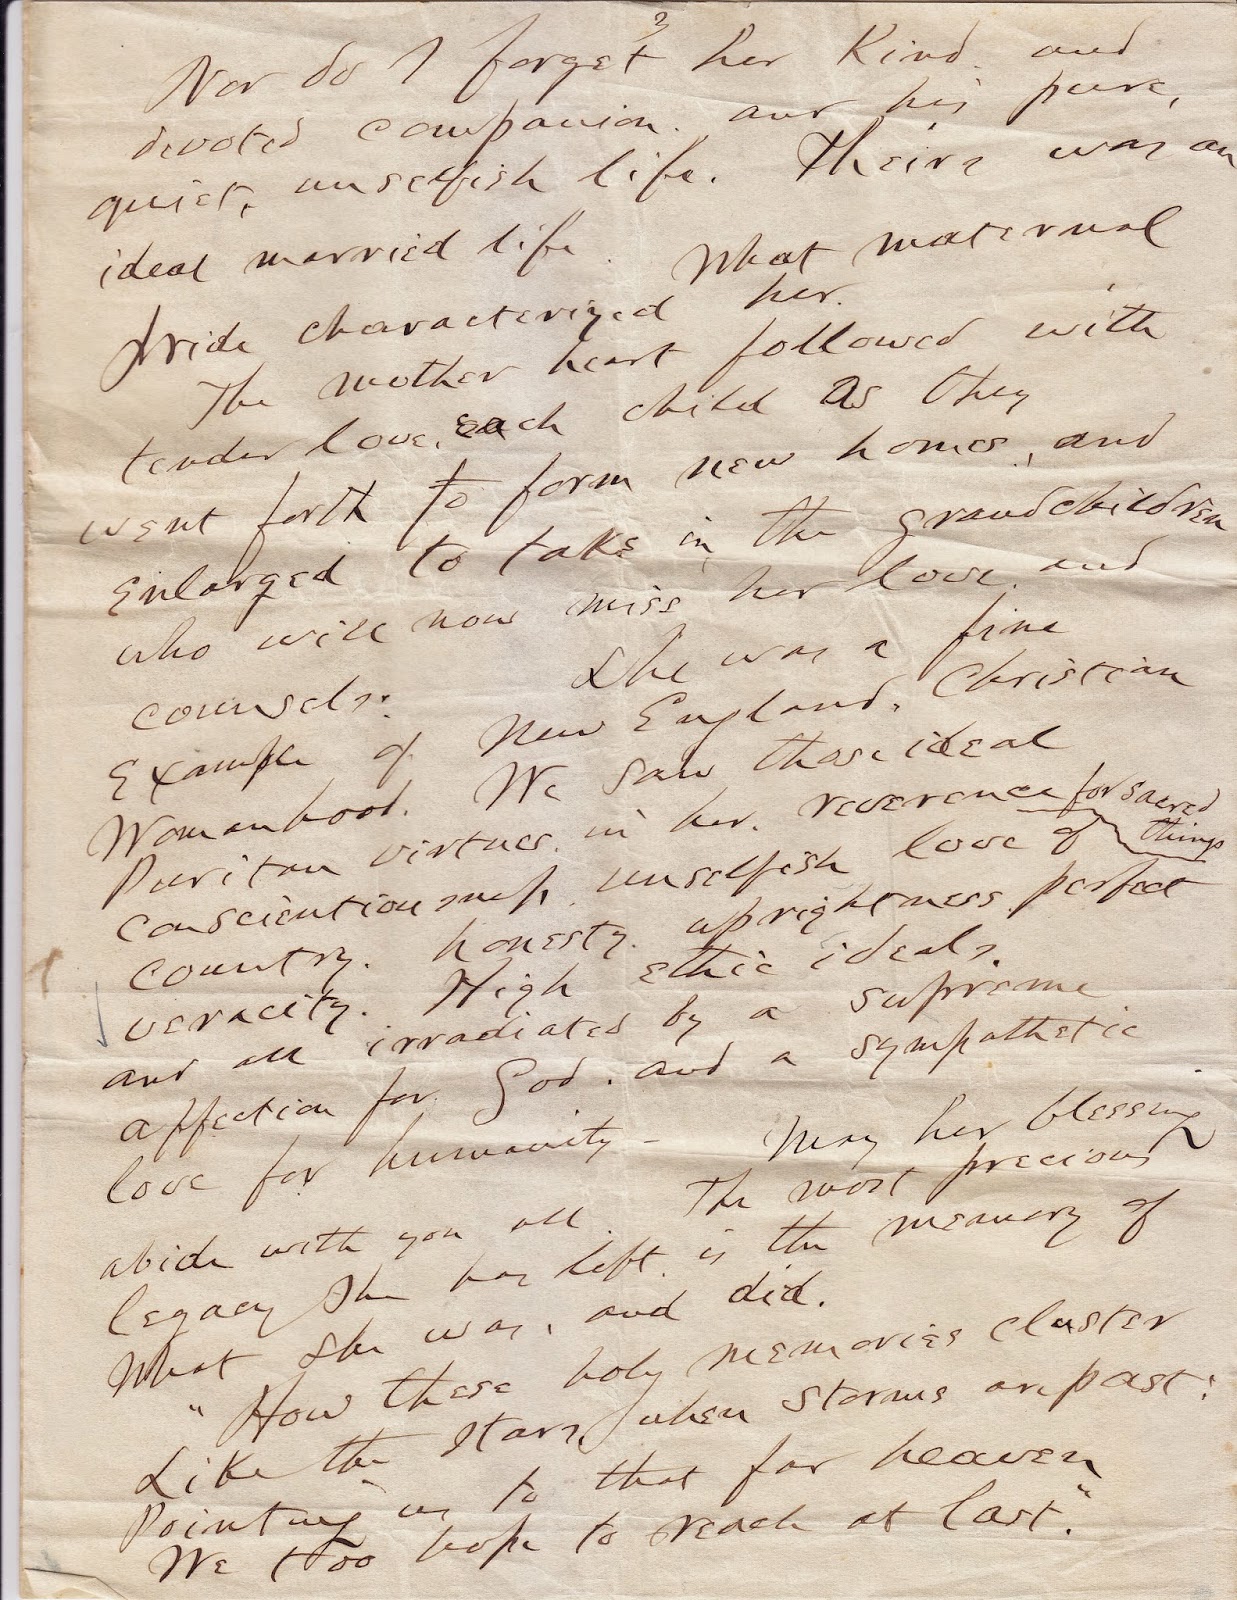 2
Nor do I forget her kind and
devoted companion. and his pure,
quiet, unselfish life. Theirs was an
ideal married life. What maternal
pride characterized her.
The mother heart followed with
tender love, each child as they
went forth to form new homes, and
Enlarged to take in the grandchildren
who will now miss her love and
counsels. She was a fine
Example of New England, Christian
Womanhood. We saw those ideal
Puritan virtues in her. reverence for sacred
things
conscientiousness, unselfish love of
country. honesty. uprightness perfect
veracity. High ethic ideals.
and all irradiated by a supreme
affection for God. and a sympathetic
love for humanity - May her blessing
abide with you all. The most precious
legacy She has left is the memory of
What She was, and did.
"How these holy memories cluster
Like the stars, when storms are past:
Pointing us to that far heaven
We too hope to reach at last."